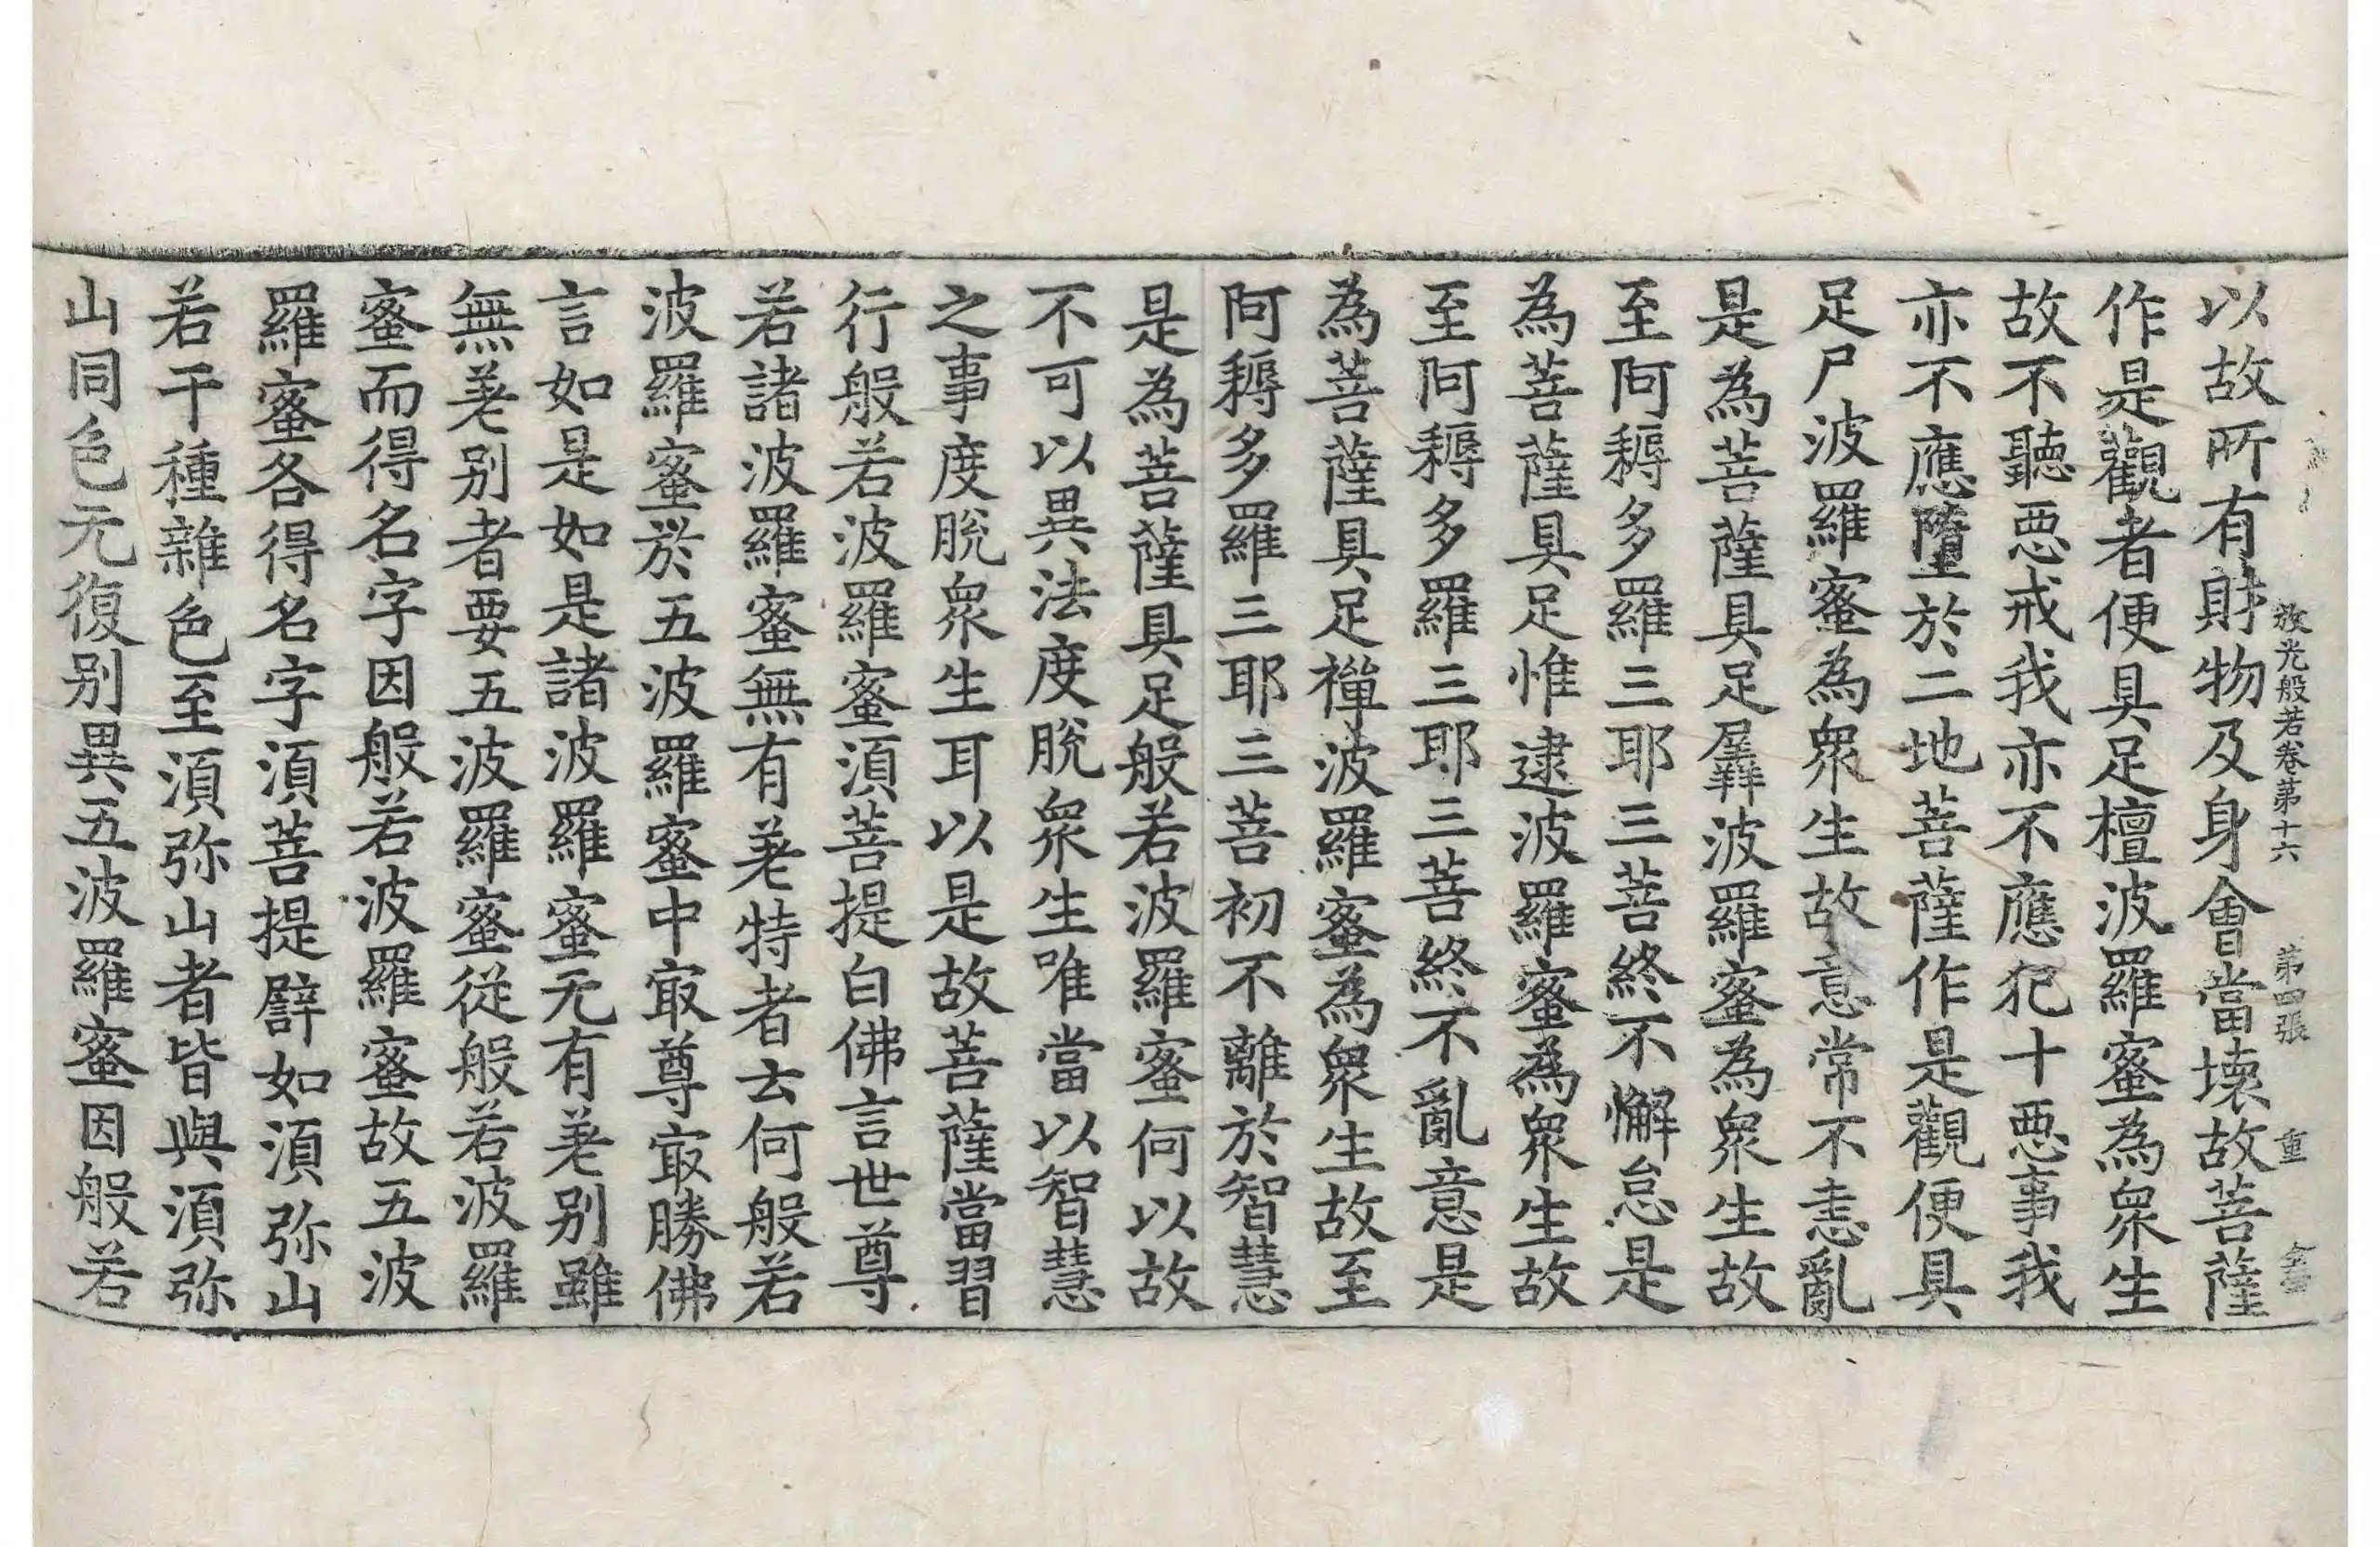 放光般若卷第十六 第四張 重
以故所有財物及身會當壞故菩薩
作是觀者便具足檀波羅蜜為衆生
故不聽惡戒我亦不應犯十惡事我
亦不應墮於二地菩薩作是觀便具
足尸波羅蜜為衆生故意常不恚亂
是為菩薩具足羼波羅蜜為衆生故
至阿耨多羅三耶三菩終不懈怠是
為菩薩具足惟逮波羅蜜為衆生故
至阿耨多羅三耶三菩終不亂意是
為菩薩具足禪波羅蜜為衆生故至
阿耨多羅三耶三菩初不離於智慧
是為菩薩具足般若波羅蜜何以故
不可以異法度脫衆生唯當以智慧
之事度脫衆生耳以是故菩薩當習
行般若波羅蜜湏菩提白佛言世尊
若諸波羅蜜無有差特者云何般若
波羅蜜於五波羅蜜中㝡尊㝡勝佛
言如是如是諸波羅蜜无有差別雖
無差別者要五波羅蜜從般若波羅
蜜而得名字因般若波羅蜜故五波
羅蜜各得名字湏菩提譬如湏弥山
若干種雜色至湏弥山者皆與湏弥
山同色元復別異五波羅蜜因般若